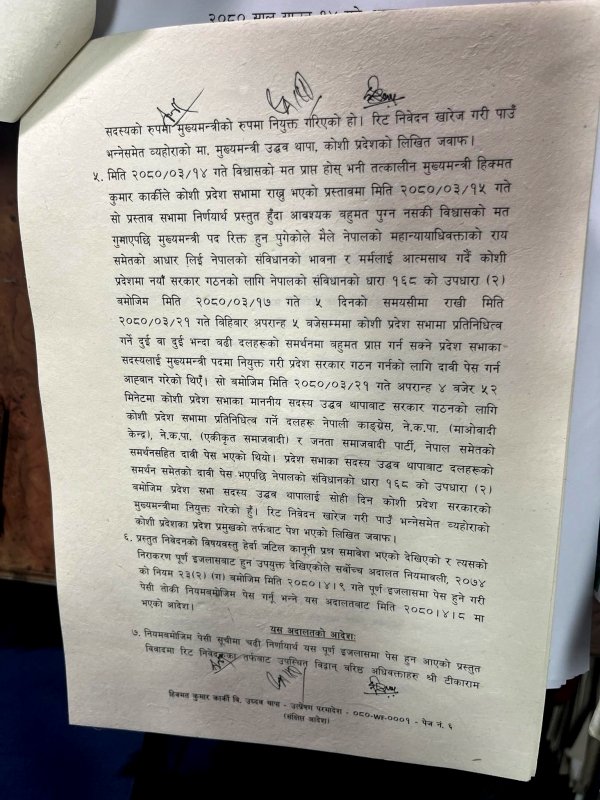 सदस्यको रुपमा मुख्यमन्त्रीको रुपमा नियुक्त गरिएको हो। रिट निवेदन खारेज गरी पाउँ
भन्नेसमेत व्यहोराको मा. मुख्यमन्त्री उद्धव थापा, कोशी प्रदेशको लिखित जवाफ।
५. मिति २०८०/०३/१४ गते विश्वासको मत प्राप्त होस् भनी तत्कालीन मुख्यमन्त्री हिक्मत
कुमार कार्कीले कोशी प्रदेश सभामा राख्नु भएको प्रस्तावमा मिति २०८०/०३/१५ गते
सो प्रस्ताव सभामा निर्णयार्थ प्रस्तुत हुँदा आवश्यक बहुमत पुग्न नसकी विश्वासको मत
गुमाएपछि मुख्यमन्त्री पद रिक्त हुन पुगेकोले मैले नेपालको महान्यायाधिवक्ताको राय
समेतको आधार लिई नेपालको संविधानको भावना र मर्मलाई आत्मसाथ गर्दै कोशी
प्रदेशमा नयाँ सरकार गठनको लागि नेपालको संविधानको धारा १६८ को उपधारा (२)
बमोजिम मिति २०८०/०३/१७ गते ५ दिनको समयसीमा राखी मिति
२०८०/०३/२१ गते विहिवार अपरान्ह ५ बजेसम्ममा कोशी प्रदेश सभामा प्रतिनिधित्व
गर्ने दुई बा दुई भन्दा बढी दलहरूको समर्थनमा बहुमत प्राप्त गर्न सक्ने प्रदेश सभाका
सदस्यलाई मुख्यमन्त्री पदमा नियुक्त गरी प्रदेश सरकार गठन गर्नको लागि दावी पेस गर्न
आह्वान गरेको थिएँ। सो बमोजिम मिति २०८०/०३/२१ गते अपरान्ह ४ बजेर ५२
मिनेटमा कोशी प्रदेश सभाका माननीय सदस्य उद्धव थापाबाट सरकार गठनको लागि
कोशी प्रदेश सभामा प्रतिनिधित्व गर्ने दलहरू नेपाली काङ्ग्रेस, ने.क.पा. (माओवादी
केन्द्र), ने.क.पा. (एकीकृत समाजवादी) र जनता समाजवादी पार्टी, नेपाल समेतको
समर्थनसहित दावी पेस भएको थियो। प्रदेश सभाका सदस्य उद्धव थापाबाट दलहरूको
समर्थन समेतको दावी पेस भएपछि नेपालको संविधानको धारा १६८ को उपधारा (२)
बमोजिम प्रदेश सभा सदस्य उद्धव थापालाई सोही दिन कोशी प्रदेश सरकारको
मुख्यमन्त्रीमा नियुक्त गरेको हुँ। रिट निवेदन खारेज गरी पाउँ भन्नेसमेत व्यहोराको
कोशी प्रदेशका प्रदेश प्रमुखको तर्फबाट पेश भएको लिखित जवाफ।
६. प्रस्तुत निवेदनको विषयवस्तु हेर्दा जटिल कानूनी प्रश्न समावेश भएको देखिएको र त्यसको
निराकरण पूर्ण इजलासबाट हुन उपयुक्त देखिएकोले सर्वोच्च अदालत नियमावली, २०७४
को नियम २३(२) (ग) बमोजिम मिति २०८०।४।९ गते पूर्ण इजलासमा पेस हुने गरी
पेसी तोकी नियमबमोजिम पेस गर्नू भन्ने यस अदालतबाट मिति २०८०।४।८ मा
भएको आदेश।
यस अदालतको आदेश:
७. नियमबमोजिम पेसी सूचीमा चढी निर्णयार्थ यस पूर्ण इजलासमा पेस हुन आएको प्रस्तुत
विवादमा रिट निवेदकका तर्फबाट उपस्थित विद्वान् वरिष्ठ अधिवक्ताहरू श्री टीकाराम
हिक्मत कुमार कार्की वि. उध्दव थापा - उत्प्रेषण परमादेश - ०८०-WF-0001 - पेज नं. ६
(संक्षिप्त आदेश)